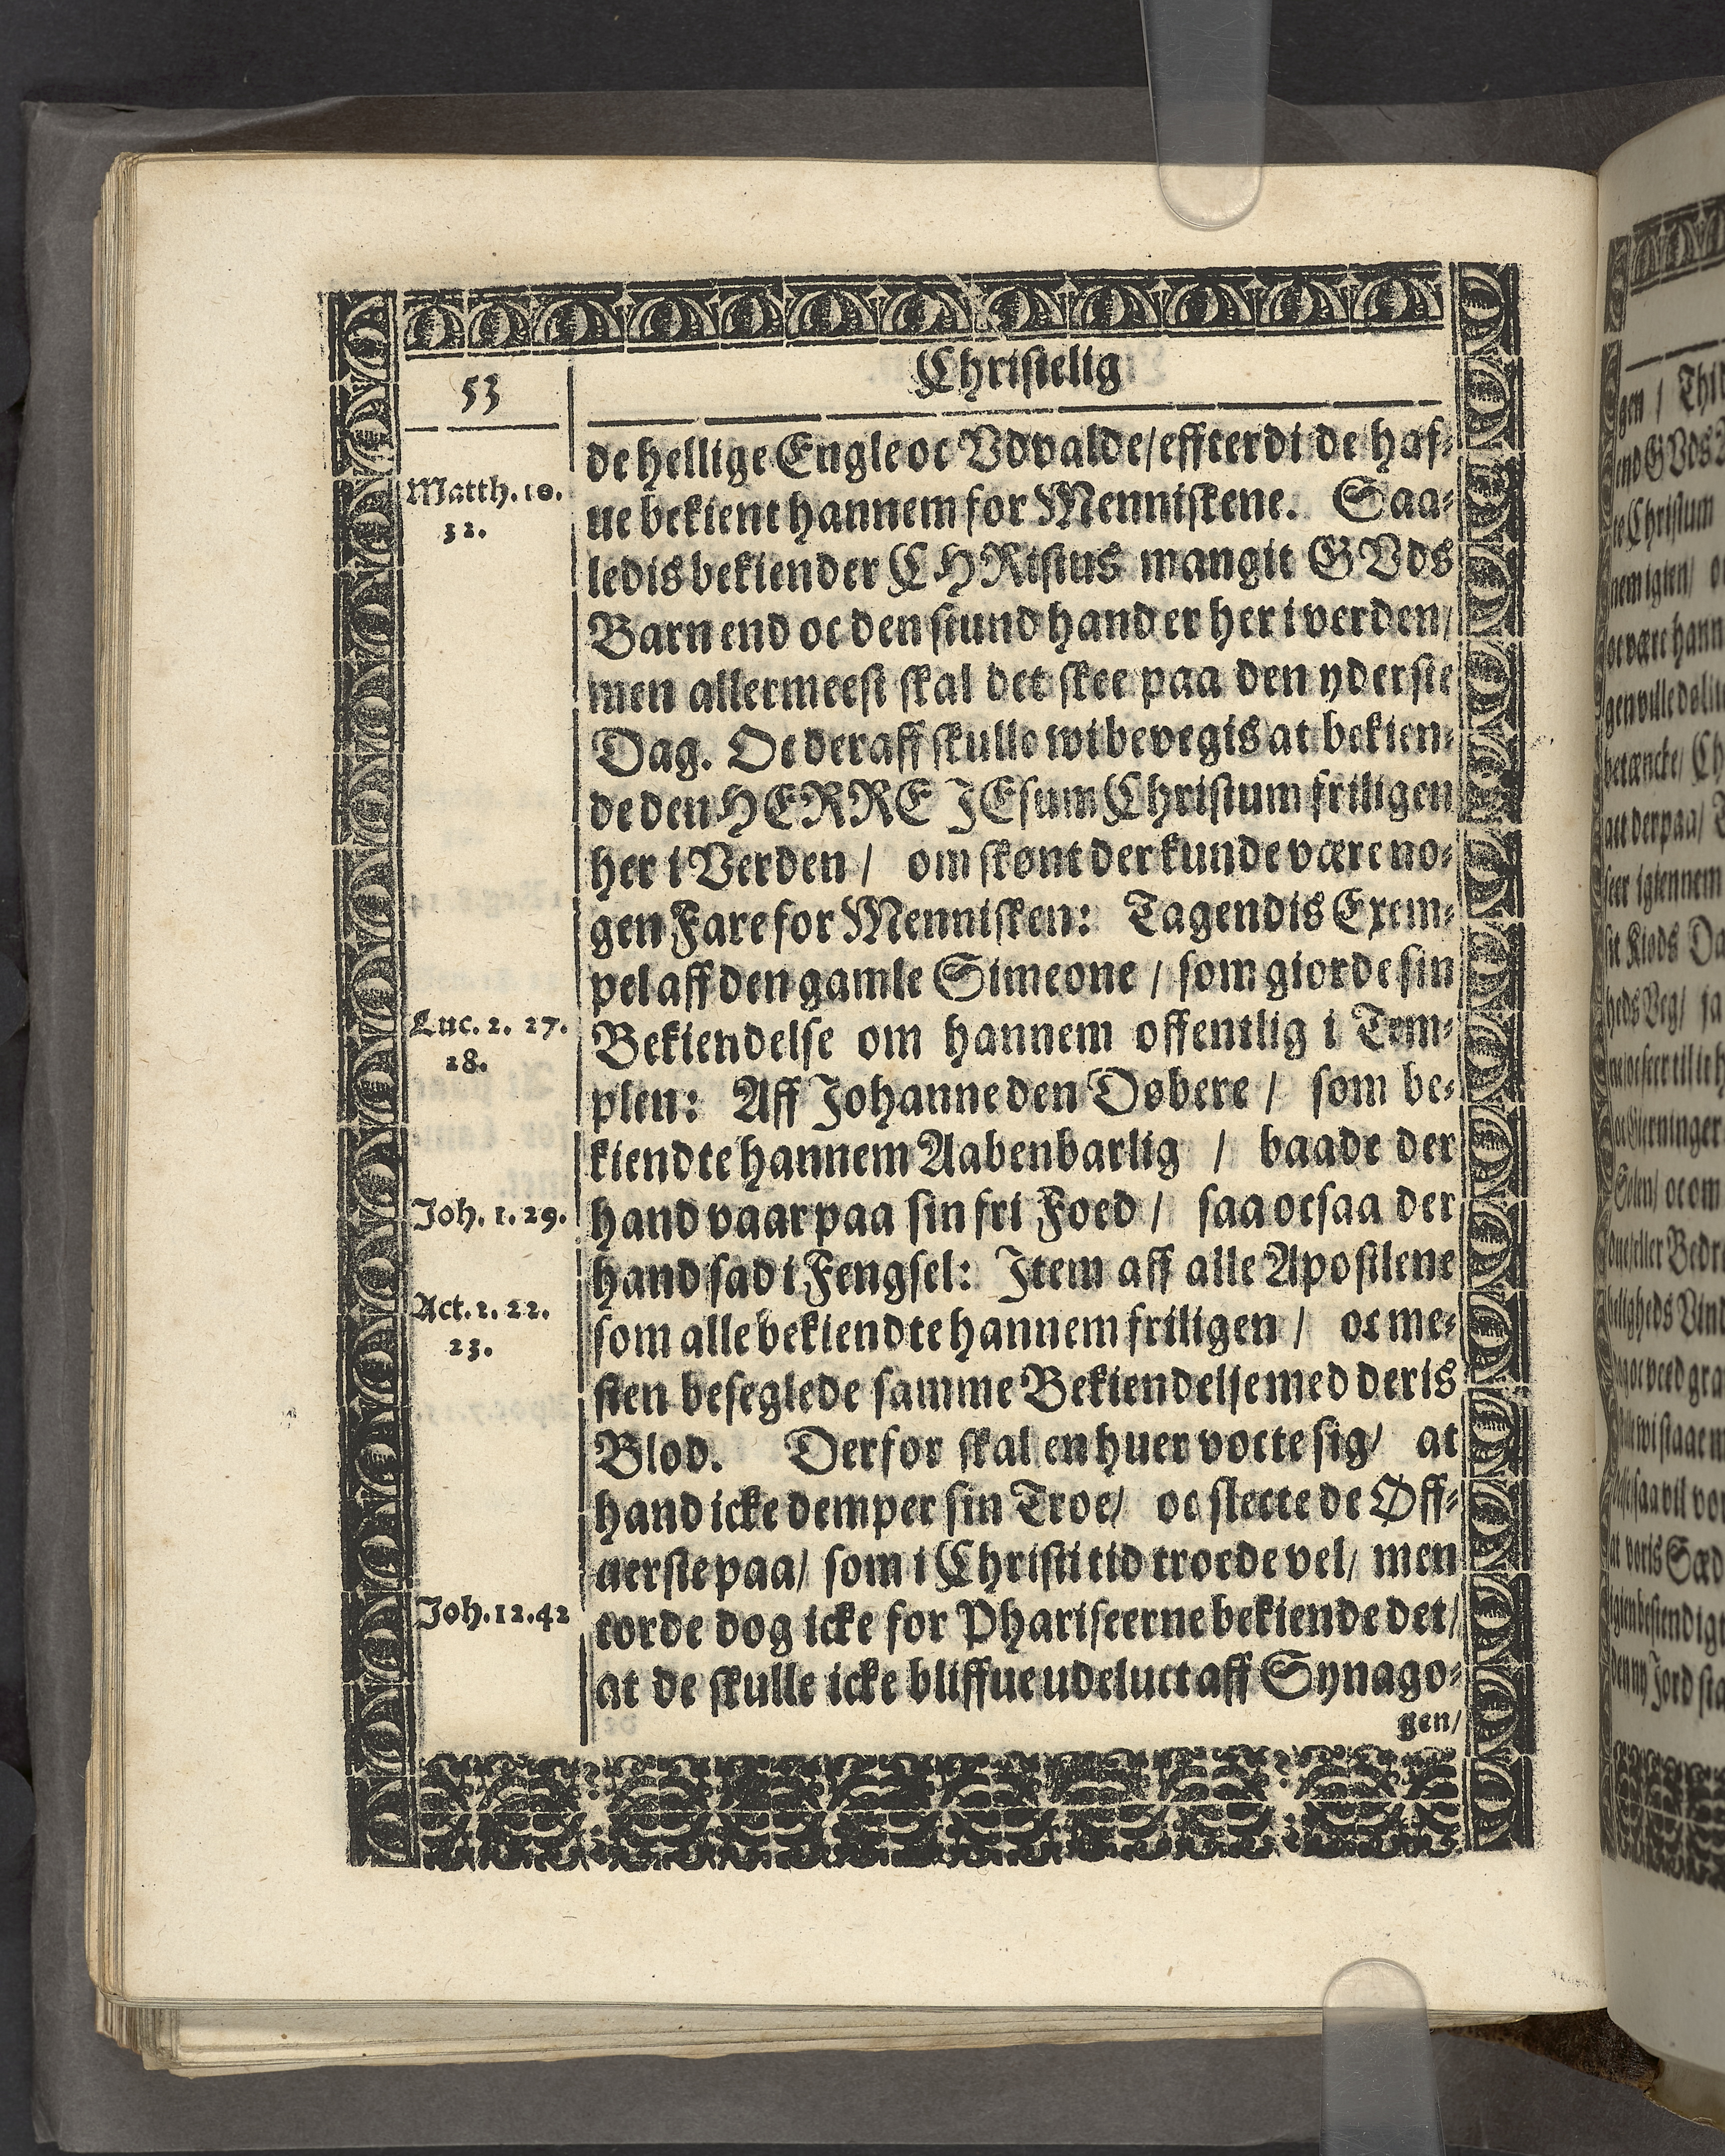 53
Christelig
de hellige Engle oc Vdvalde/ effterdi de haf-
Matth. 10.
32.
ue bekient hannem for Menniskene. Saa-
ledis bekiender CHRistus mangit GVds
Barn end oc den stund hand er her i verden/
men allermeest skal det skee paa den yderste
Dag. Oc deraff skulle wi bevegis at bekien-
de den HERRE JEsum Christum friligen
her i Verden/ om skønt der kunde være no-
gen Fare for Mennisken: Tagendis Exem-
pel aff den gamle Simeone/ som giorde sin
Luc. 2. 27.
28.
Bekiendelse om hannem offentlig i Tem-
plen: Aff Johanne den Døbere/ som be-
kiendte hannem Aabenbarlig/ baade der
Joh. 1. 29.
hand vaar paa sin fri Foed/ saa ocsaa der
hand sad i Fengsel: Item aff alle Apostlene
Act. 2. 22.
23.
som alle bekiendte hannem friligen/ oc me-
sten beseglede samme Bekiendelse med deris
Blod. Derfor skal en huer vocte sig/ at
hand icke demper sin Troe/ oc slecte de Øff-
uerste paa/ som i Christi tid troede vel/ men
Joh. 12. 42
torde dog icke for Phariseerne bekiende det/
at de skulle icke bliffue udeluct aff Synago-
gen/